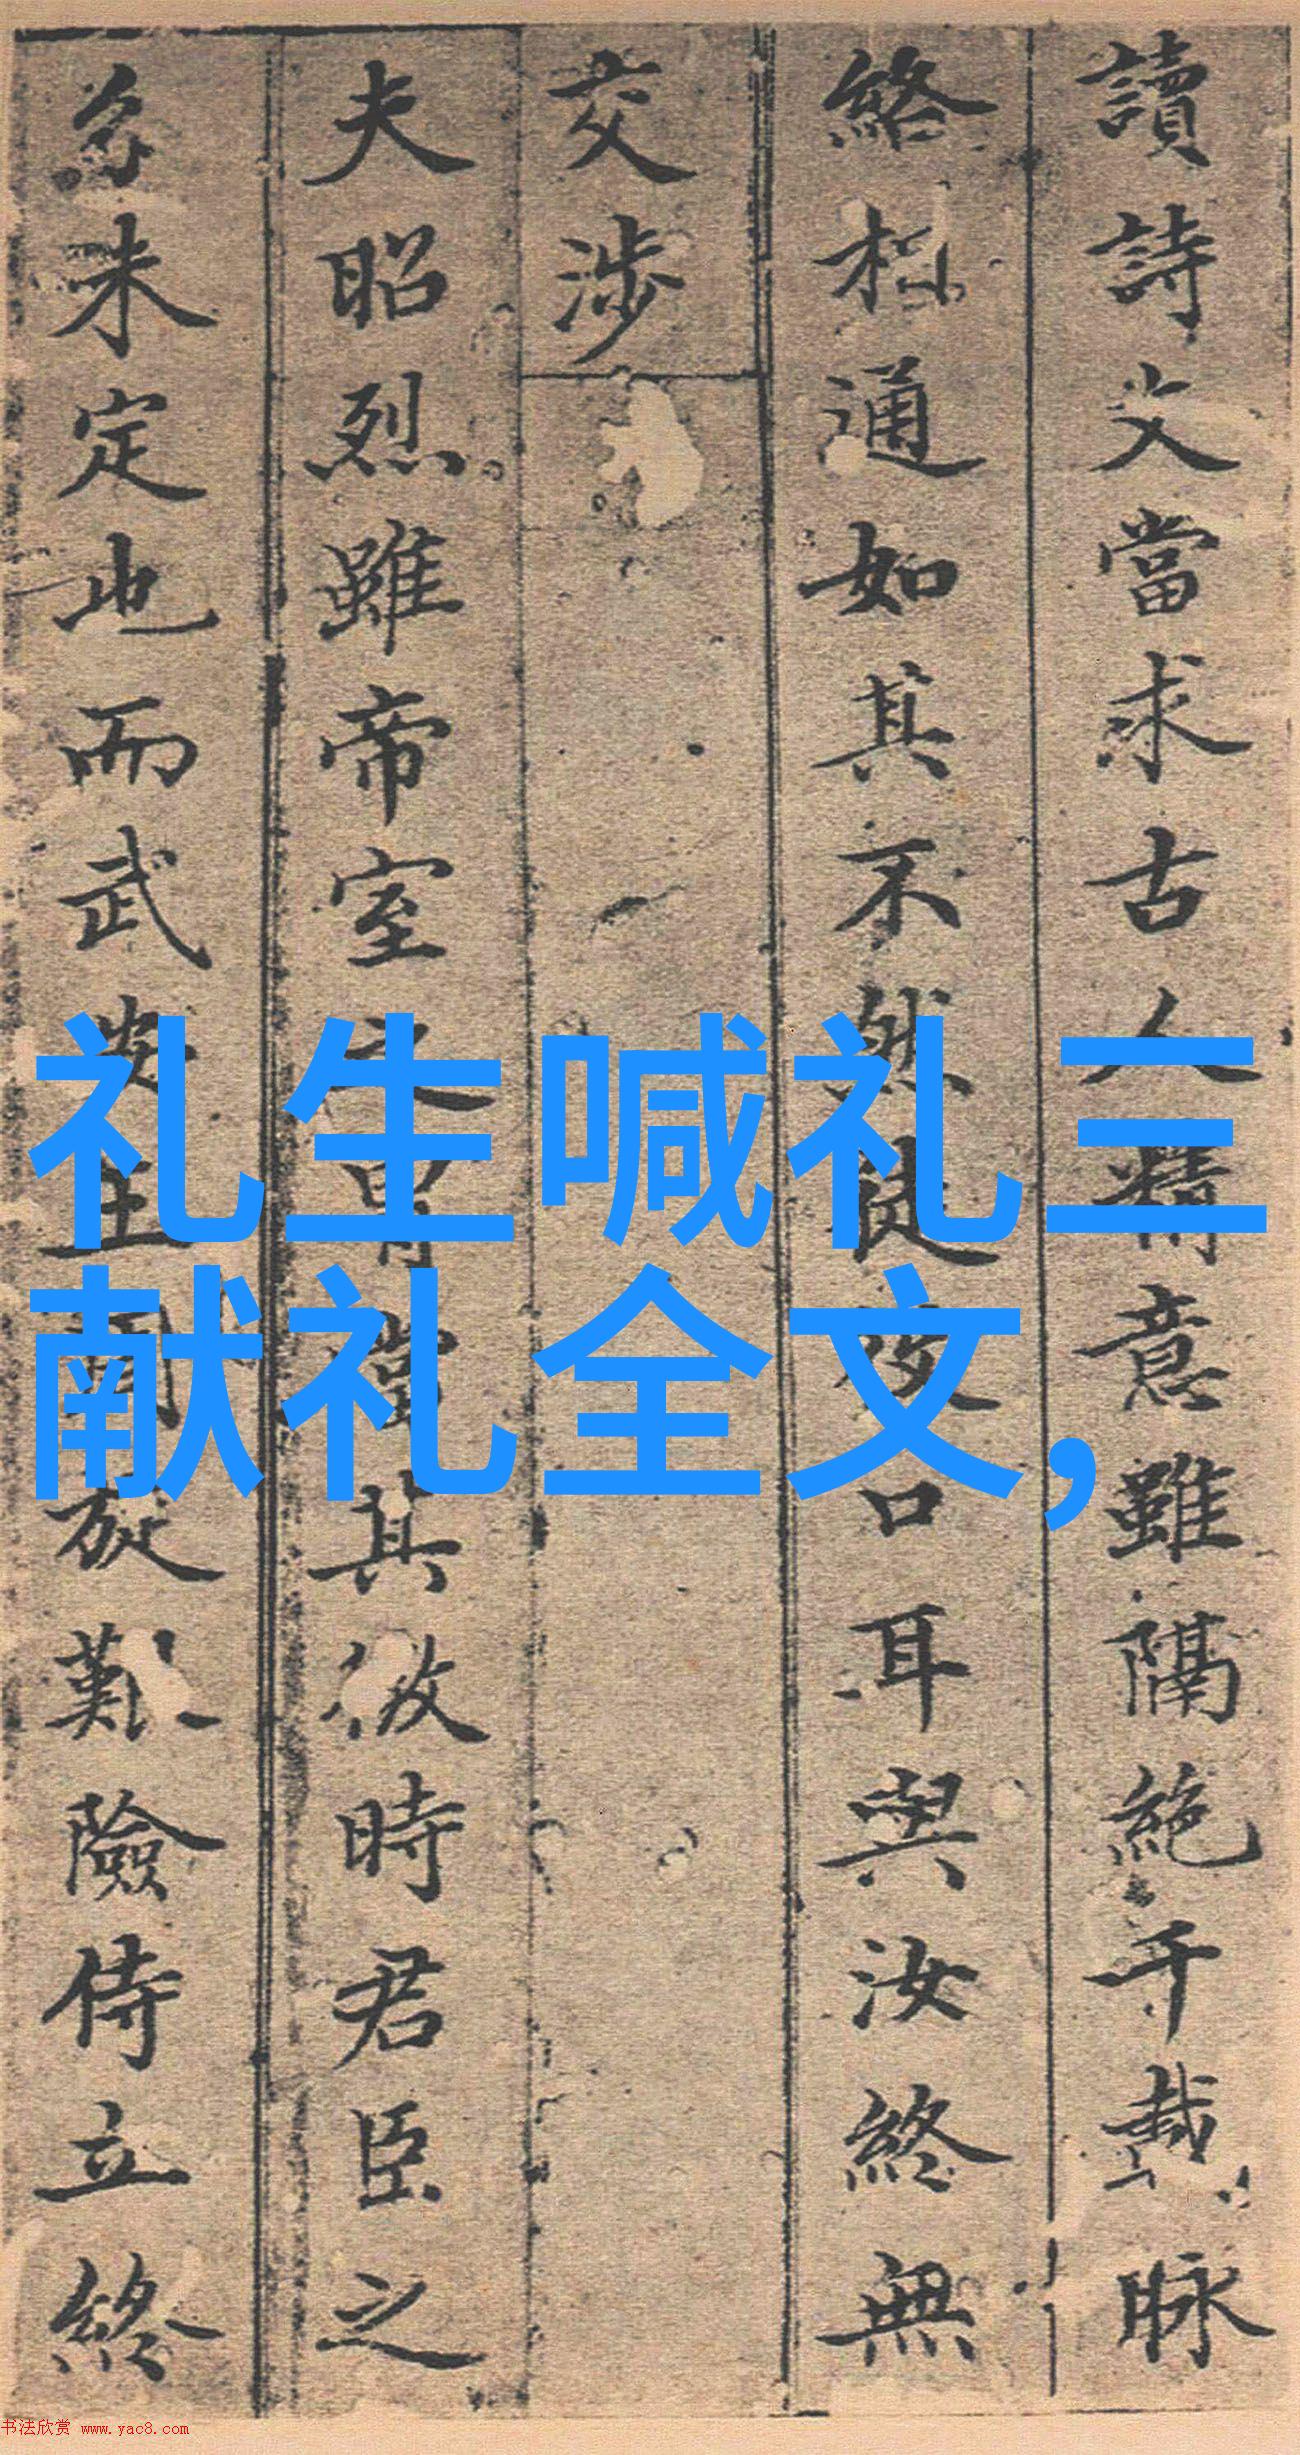 讀詩文當求古人精意雖隔絶千載脉
絡相通如其不然徒役口耳與汝終無
交涉
夫昭烈雖帝室之胄當其微時君臣之
分未定也而武安王周旋艱險侍立終
礼生喊礼三
献礼全文,
书法欣赏 www.yac8.com